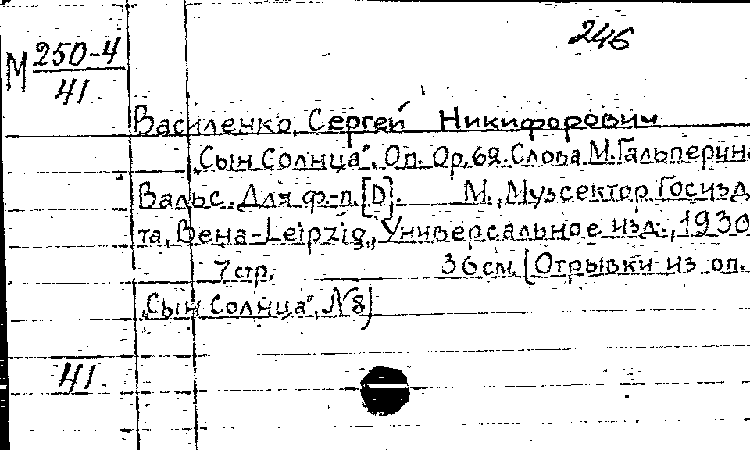 246
М 250-4
41
Василенко, Сергей Никифорович
„Сын Солнца". Оп. Op. 62. Слова М. Гальперина
Вальс. Для ф-п. [D]. М., Музсектор Госизд
та, Вена-Leipzig, Универсальное изд., 1930
7 стр. 36 см. [Отрывки из оп.
„Сын Солнца", № 8]
41.